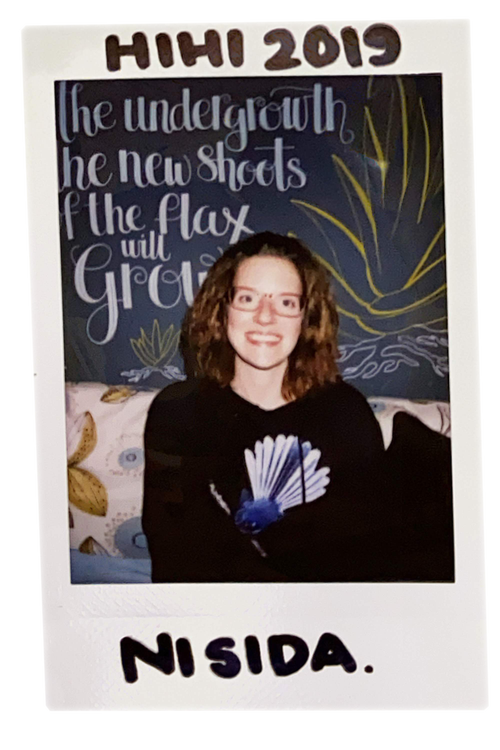 HIHI 2019
the undergrowth
he new shoots
f the flax
will
Grow
NISIDA.